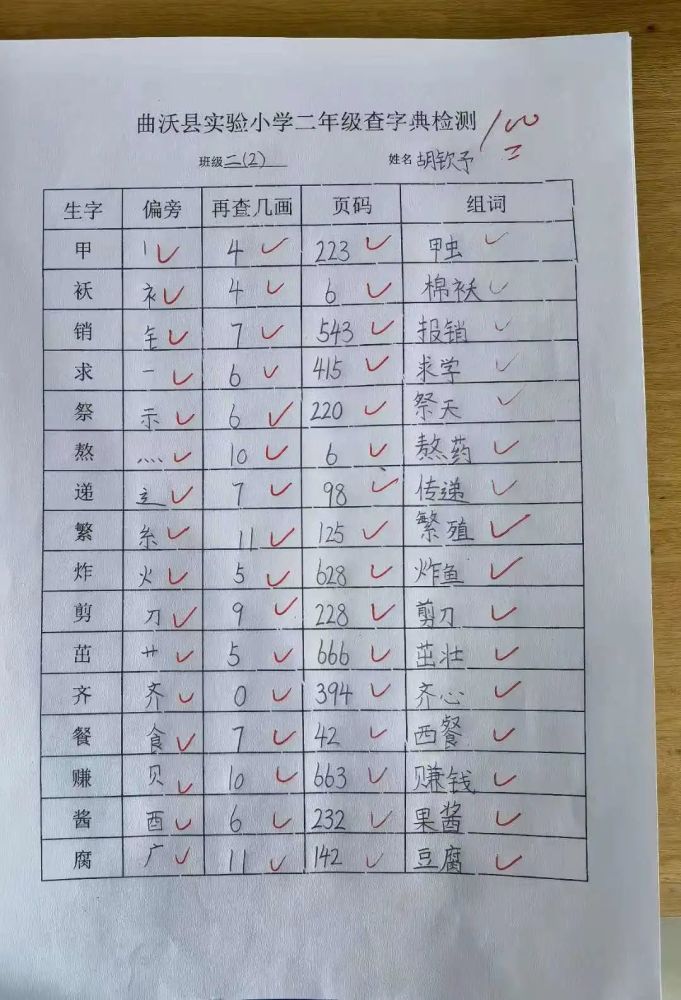 曲沃县实验小学二年级查字典检测 100
班级 二(2) 姓名 胡钦予
生字 偏旁 再查几画 页码 组词
甲 丨 4 223 甲虫
袄 衤 4 6 棉袄
销 钅 7 543 报销
求 一 6 415 求学
祭 示 6 220 祭天
熬 灬 10 6 熬药
递 辶 7 98 传递
繁 糸 11 125 繁殖
炸 火 5 628 炸鱼
剪 刀 9 228 剪刀
茁 艹 5 666 茁壮
齐 齐 0 394 齐心
餐 食 7 42 西餐
赚 贝 10 663 赚钱
酱 酉 6 232 果酱
腐 广 11 142 豆腐